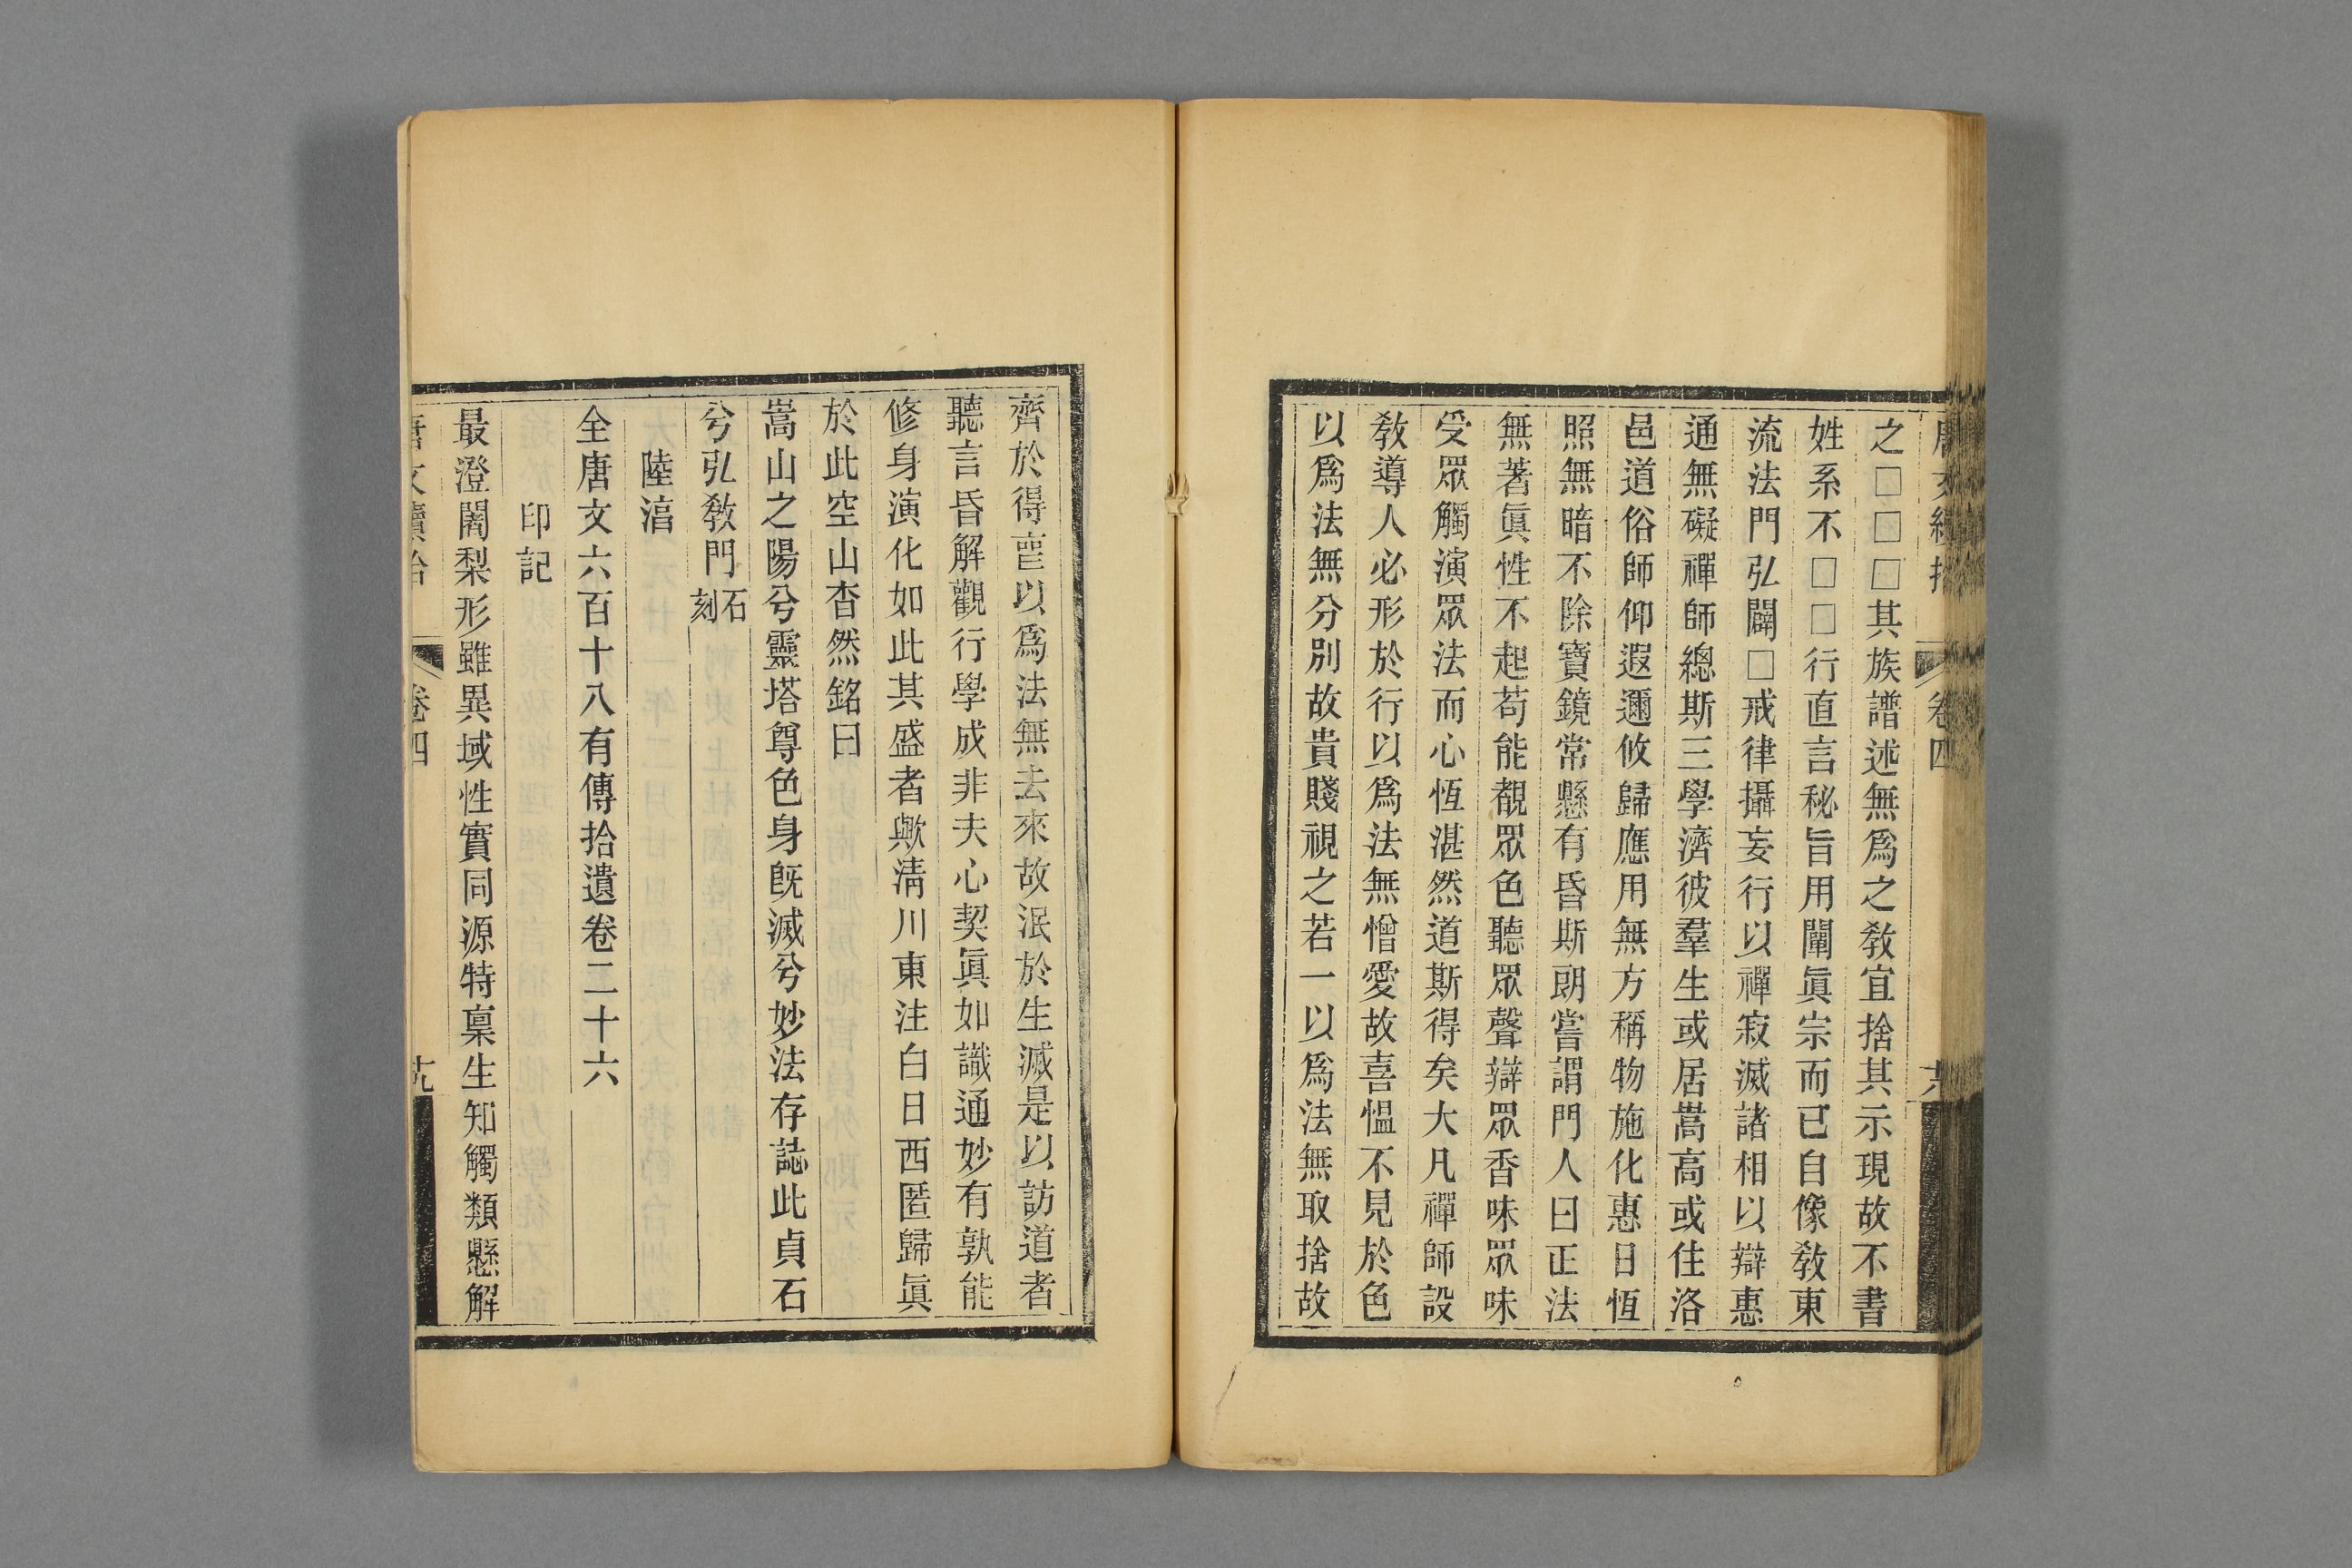 之□□□其族譜述無爲之敎宜捨其示現故不書
姓系不□□行直言秘旨用闡眞宗而已自像敎東
流法門弘闢□戒律攝妄行以禪寂滅諸相以辯惠
通無礙禪師總斯三學濟彼羣生或居嵩高或住洛
邑道俗師仰遐邇攸歸應用無方稱物施化惠日恆
照無暗不除寶鏡常懸有昏斯朗嘗謂門人曰正法
無著眞性不起苟能覩眾色聽眾聲辯眾香味眾味
受眾觸演眾法而心恆湛然道斯得矣大凡禪師設
敎導人必形於行以爲法無憎愛故喜慍不見於色
以爲法無分別故貴賤視之若一以爲法無取捨故
齊於得䘮以爲法無去來故泯於生滅是以訪道者
聽言昏解觀行學成非夫心契眞如識通妙有孰能
修身演化如此其盛者歟淸川東注白日西匿歸眞
於此空山杳然銘曰
嵩山之陽兮靈塔尊色身旣滅兮妙法存誌此貞石
兮弘敎門石刻
陸淯
全唐文六百十八有傳拾遺卷二十六
印記
最澄闍梨形雖異域性實同源特稟生知觸類懸解
卷四